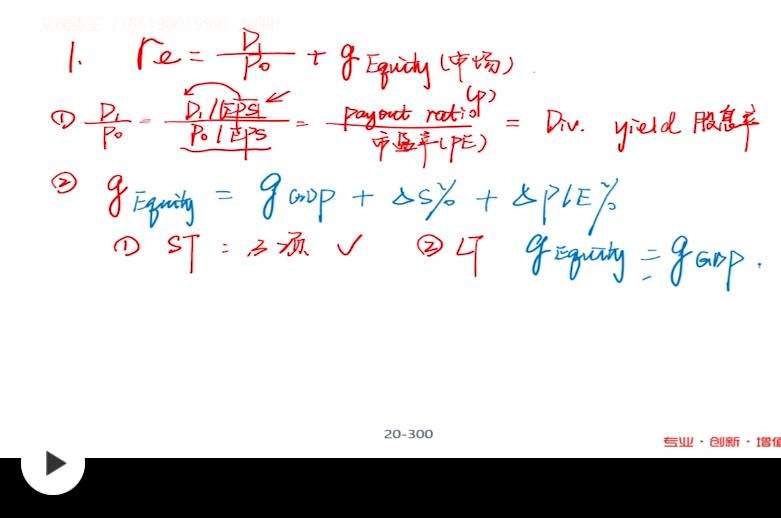 1. re = D1/P0 + g Equity (市场)
① D1/P0 = (D1/EPS1)/(P0/EPS) = payout ratio (p)/市盈率(PE) = Div. yield 股息率
② g Equity = g GDP + ΔS% + ΔP/E%
① ST: 三项 ✓ ② LT g Equity = g GDP.
20-300
专业·创新·增值